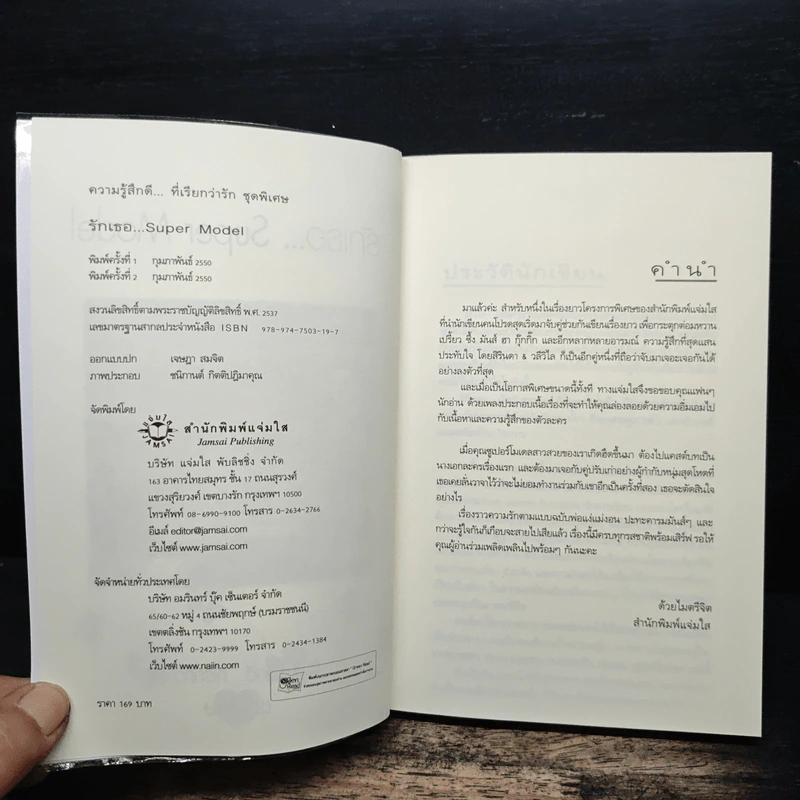 ความรู้สึกดี... ที่เรียกว่ารัก ชุดพิเศษ
รักเธอ...Super Model
พิมพ์ครั้งที่ 1 กุมภาพันธ์ 2550
พิมพ์ครั้งที่ 2 กุมภาพันธ์ 2550
สงวนลิขสิทธิ์ตามพระราชบัญญัติลิขสิทธิ์ พ.ศ. 2537
เลขมาตรฐานสากลประจำหนังสือ ISBN 978-974-7503-19-7
ออกแบบปก เจษฎา สมจิต
ภาพประกอบ ชนิกานต์ กิตติปฎิมาคุณ
จัดพิมพ์โดย
แจ่มใส
JAMSAI
สำนักพิมพ์แจ่มใส
Jamsai Publishing
บริษัท แจ่มใส พับลิชชิ่ง จำกัด
163 อาคารไทยสมุทร ชั้น 17 ถนนสุรวงศ์
แขวงสุริยวงศ์ เขตบางรัก กรุงเทพฯ 10500
โทรศัพท์ 08-6990-9100 โทรสาร 0-2634-2766
อีเมล์ editor@jamsai.com
เว็บไซต์ www.jamsai.com
จัดจำหน่ายทั่วประเทศโดย
บริษัท อมรินทร์ บุ๊ค เซ็นเตอร์ จำกัด
65/60-62 หมู่ 4 ถนนชัยพฤกษ์ (บรมราชชนนี)
เขตตลิ่งชัน กรุงเทพฯ 10170
โทรศัพท์ 0-2423-9999 โทรสาร 0-2434-1384
เว็บไซต์ www.naiin.com
ราคา 169 บาท
คำนำ
มาแล้วค่ะ สำหรับหนึ่งในเรื่องยาวโครงการพิเศษของสำนักพิมพ์แจ่มใส
ที่นำนักเขียนคนโปรดสุดเริ่ดมาจับคู่ช่วยกันเขียนเรื่องยาว เพื่อกระตุกต่อมหวาน
เปรี้ยว ซึ้ง มันส์ ฮา กุ๊กกิ๊ก และอีกหลากหลายอารมณ์ ความรู้สึกที่สุดแสน
ประทับใจ โดยสิรินดา & วลีวิไล ก็เป็นอีกคู่หนึ่งที่ถือว่าจับมาเจอะเจอกันได้
อย่างลงตัวที่สุด
และเมื่อเป็นโอกาสพิเศษขนาดนี้ทั้งที ทางแจ่มใสจึงขอขอบคุณแฟนๆ
นักอ่าน ด้วยเพลงประกอบเนื้อเรื่องที่จะทำให้คุณล่องลอยด้วยความอิ่มเอมไป
กับเนื้อหาและความรู้สึกของตัวละคร
เมื่อคุณซูเปอร์โมเดลสาวสวยของเราเกิดฮึดขึ้นมา ต้องไปแคสต์บทเป็น
นางเอกละครเรื่องแรก และต้องมาเจอกับคู่ปรับเก่าอย่างผู้กำกับหนุ่มสุดโหดที่
เธอเคยลั่นวาจาไว้ว่าจะไม่ยอมทำงานร่วมกับเขาอีกเป็นครั้งที่สอง เธอจะตัดสินใจ
อย่างไร
เรื่องราวความรักตามแบบฉบับพ่อแง่แม่งอน ปะทะคารมมันส์ๆ และ
กว่าจะรู้ใจกันก็เกือบจะสายไปเสียแล้ว เรื่องนี้มีครบทุกรสชาติพร้อมเสิร์ฟ รอให้
คุณผู้อ่านร่วมเพลิดเพลินไปพร้อมๆ กันนะคะ
ด้วยไมตรีจิต
สำนักพิมพ์แจ่มใส